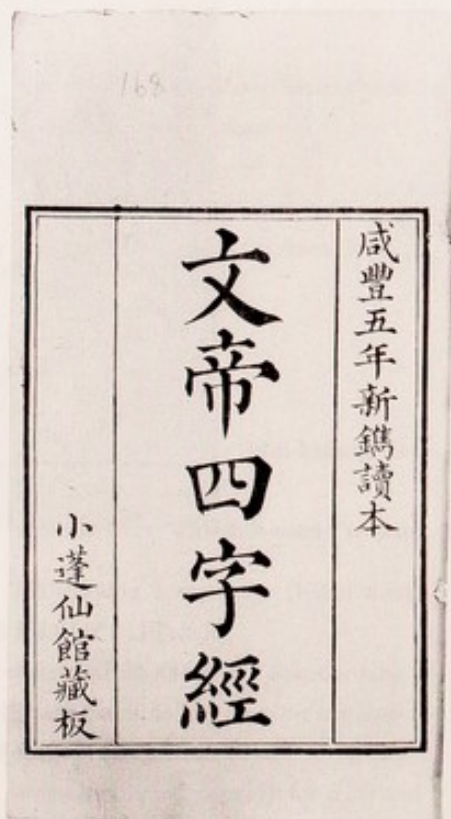 168
咸豐五年新鐫讀本
文帝四字經
小蓬仙館藏板